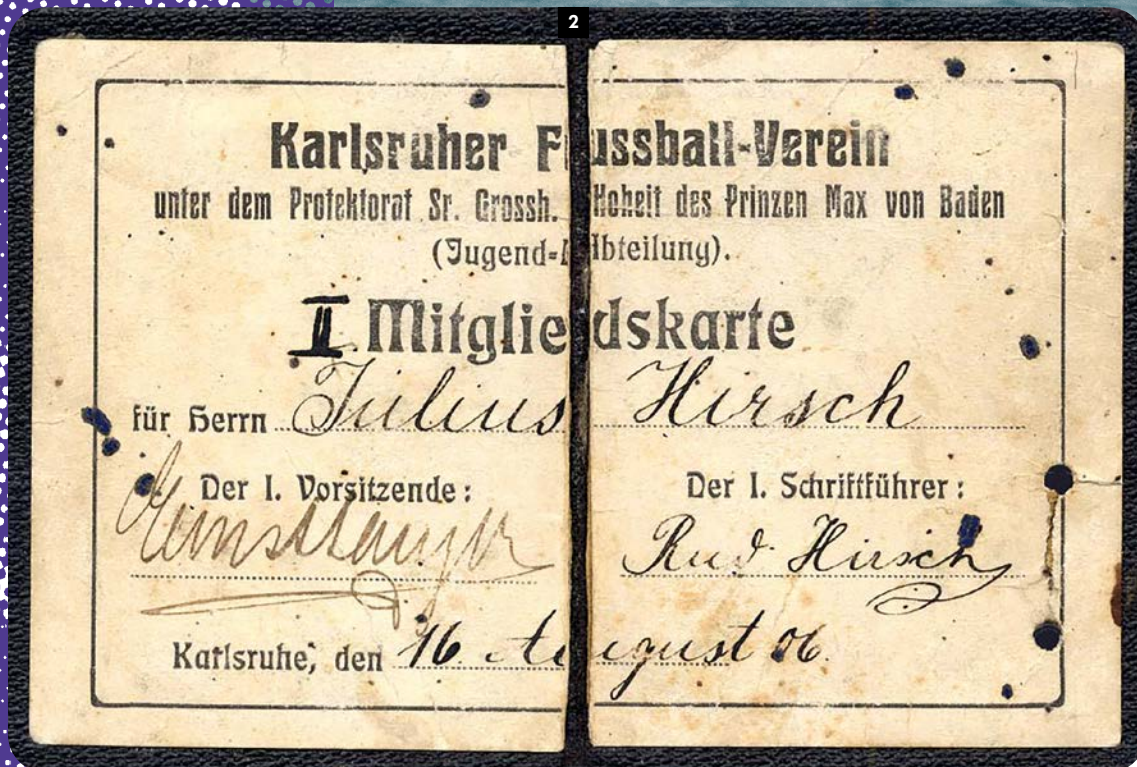 2
Karlsruher Fussball-Verein
unter dem Protektorat Sr. Grossh. Hoheit des Prinzen Max von Baden
(Jugend-Abteilung).
II Mitgliedskarte
für Herrn Julius Hirsch
Der I. Vorsitzende: Der I. Schriftführer:
Rud. Hirsch
Karlsruhe, den 16. August 06.